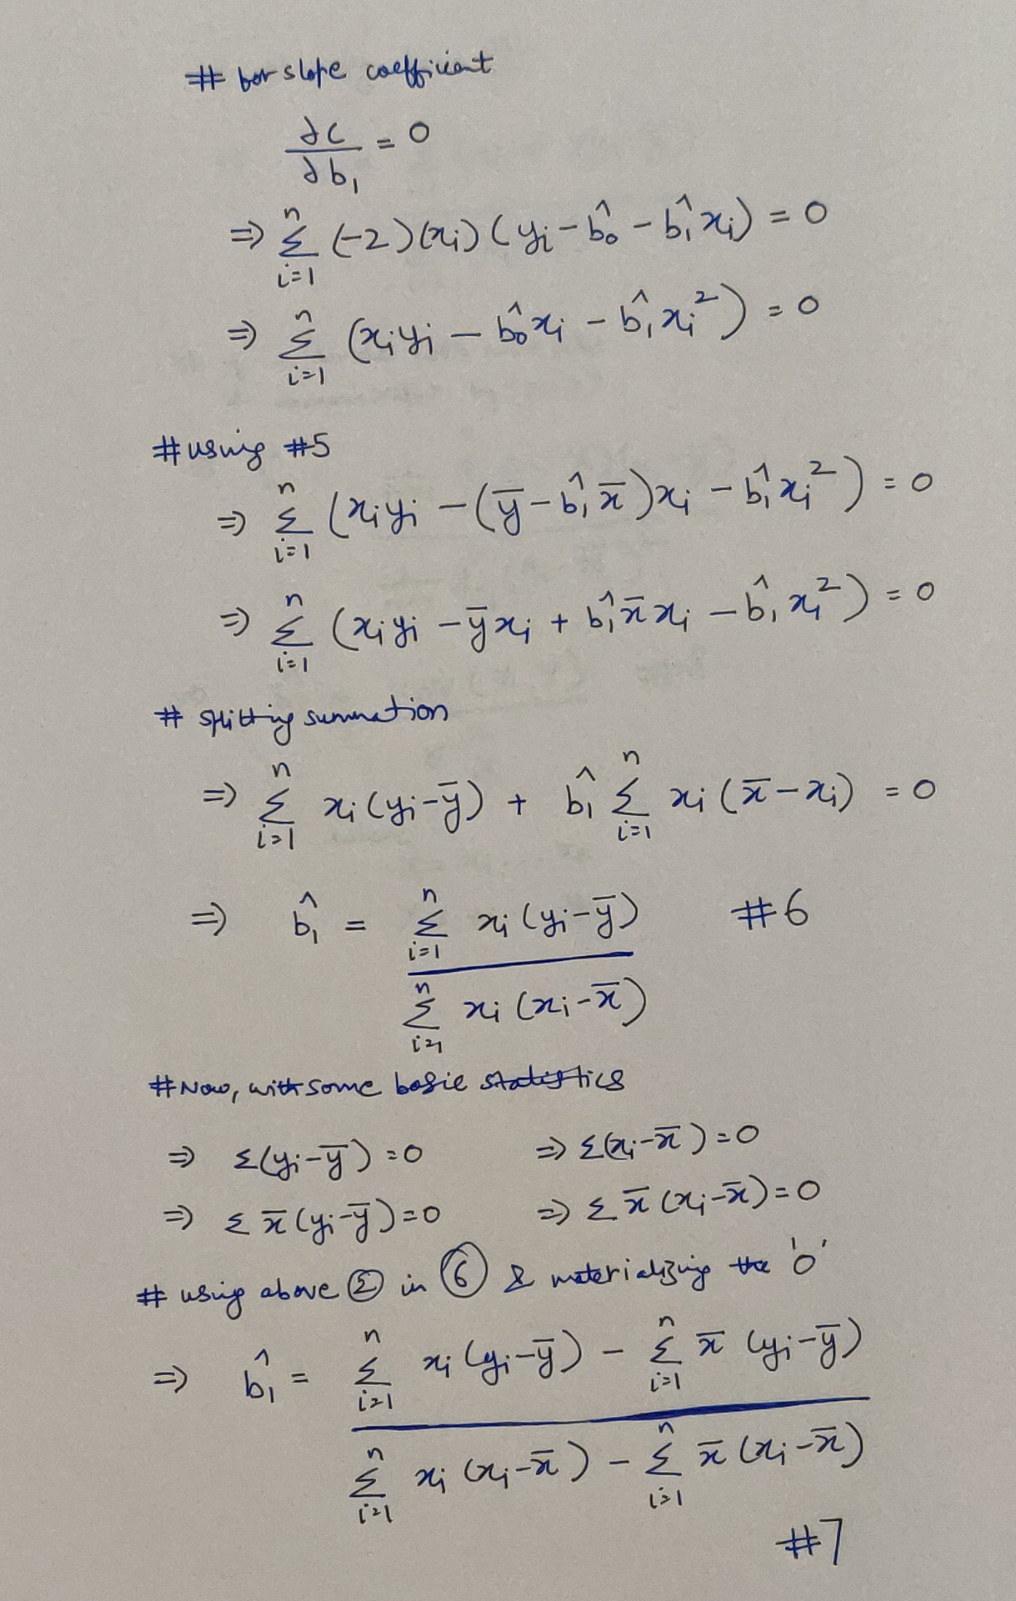 # for slope coefficient
∂C/∂b₁ = 0
⇒ Σᵢ₌₁ⁿ (-2)(xᵢ)(yᵢ - b̂₀ - b̂₁xᵢ) = 0
⇒ Σᵢ₌₁ⁿ (xᵢyᵢ - b̂₀xᵢ - b̂₁xᵢ²) = 0
# using #5
⇒ Σᵢ₌₁ⁿ (xᵢyᵢ - (ȳ - b̂₁x̄)xᵢ - b̂₁xᵢ²) = 0
⇒ Σᵢ₌₁ⁿ (xᵢyᵢ - ȳxᵢ + b̂₁x̄xᵢ - b̂₁xᵢ²) = 0
# splitting summation
⇒ Σᵢ₌₁ⁿ xᵢ(yᵢ - ȳ) + b̂₁ Σᵢ₌₁ⁿ xᵢ(x̄ - xᵢ) = 0
⇒ b̂₁ = Σᵢ₌₁ⁿ xᵢ(yᵢ - ȳ) / Σᵢ₌₁ⁿ xᵢ(xᵢ - x̄) #6
# Now, with some basic statistics
⇒ Σ(yᵢ - ȳ) = 0 ⇒ Σ(xᵢ - x̄) = 0
⇒ Σ x̄(yᵢ - ȳ) = 0 ⇒ Σ x̄(xᵢ - x̄) = 0
# using above Ⓢ in ⑥ & materializing the '0'
⇒ b̂₁ = Σᵢ₌₁ⁿ xᵢ(yᵢ - ȳ) - Σᵢ₌₁ⁿ x̄(yᵢ - ȳ) / Σᵢ₌₁ⁿ xᵢ(xᵢ - x̄) - Σᵢ₌₁ⁿ x̄(xᵢ - x̄)
#7